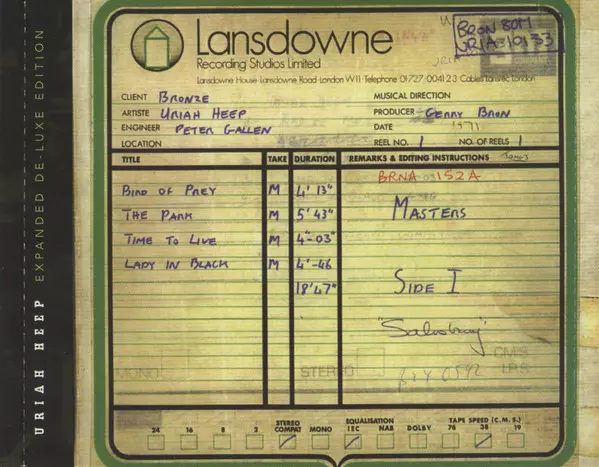 URIAH HEEP EXPANDED DE-LUXE EDITION
Lansdowne
Recording Studios Limited
Lansdowne House Lansdowne Road London W11 Telephone 01 727 0041 2 3 Cables Lansrec London
BRON 80M
URIA 310133
CLIENT BRONZE
MUSICAL DIRECTION
ARTISTE URIAH HEEP
PRODUCER GERRY BRON
ENGINEER PETER GALLEN
DATE 1971
LOCATION
REEL NO. 1 NO. OF REELS 1
TITLE TAKE DURATION REMARKS & EDITING INSTRUCTIONS
BRNA 152A
BIRD OF PREY M 4' 13"
MASTERS
THE PARK M 5' 43"
TIME TO LIVE M 4"-03"
LADY IN BLACK M 4'-46
18'47"
SIDE I
"Salisbury"
MONO STEREO CMS
IPS
24 16 8 2 STEREO COMPAT MONO EQUALISATION IEC NAB DOLBY TAPE SPEED (C.M.S.) 76 38 19